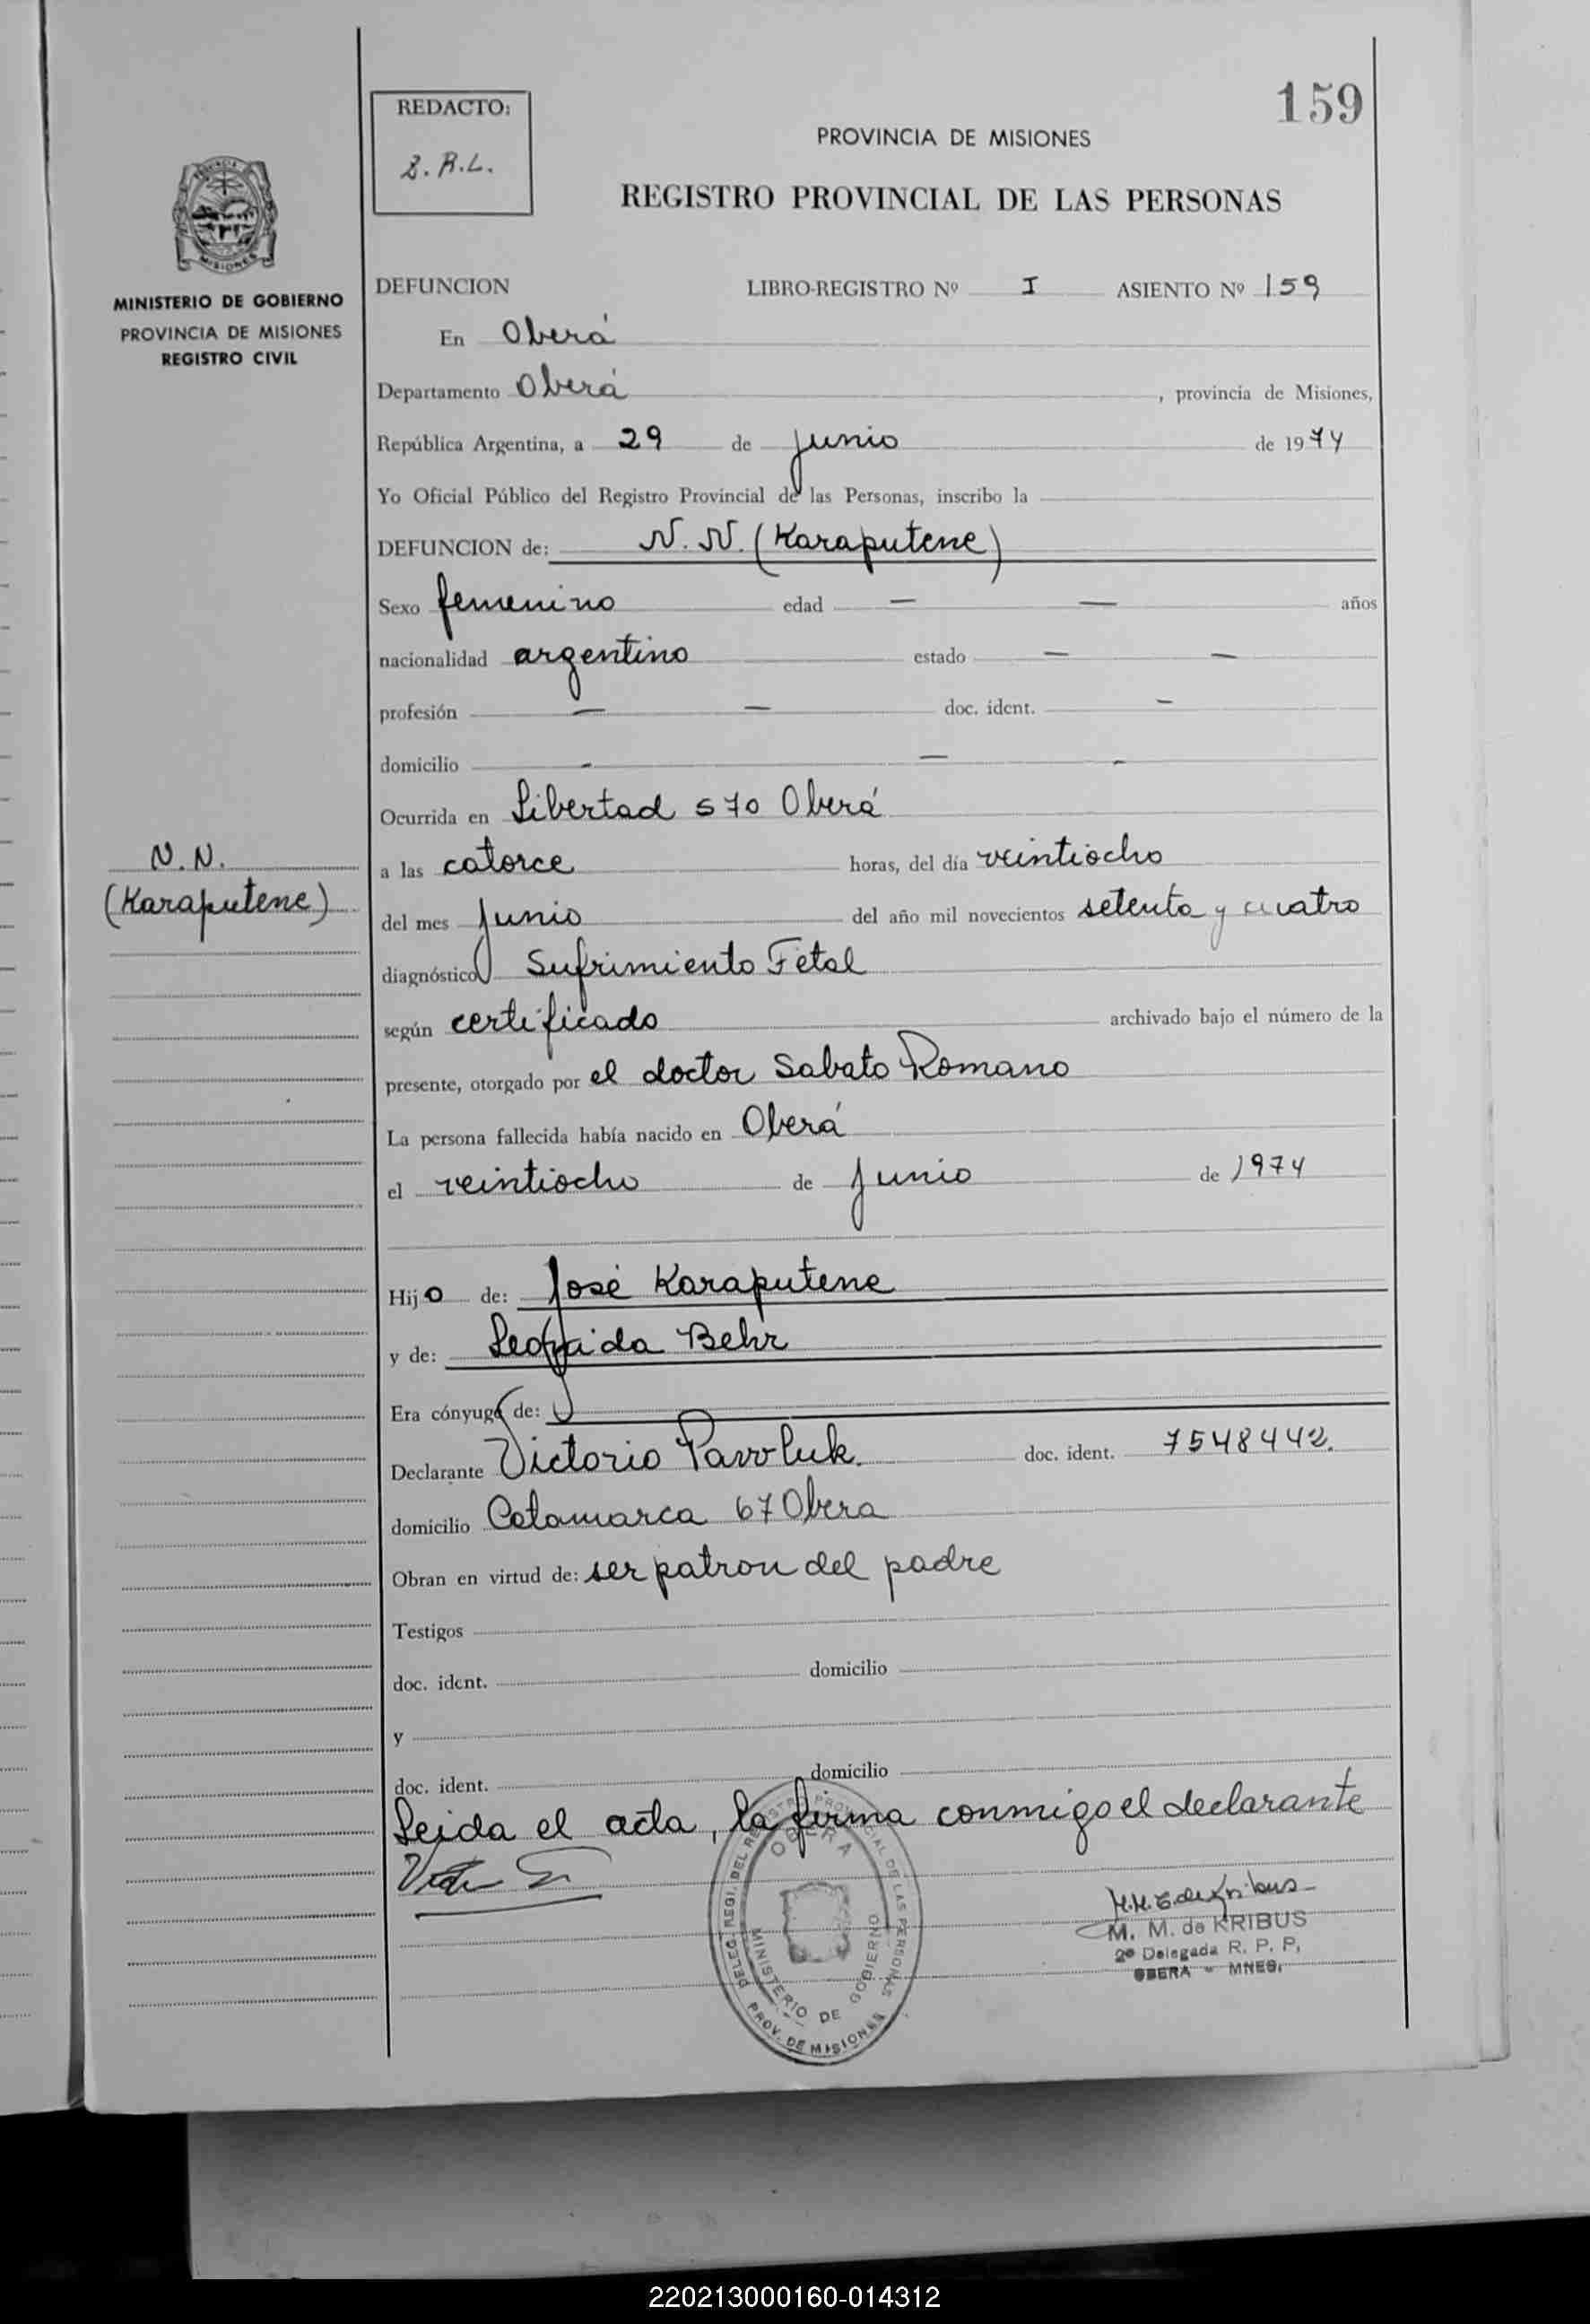 159
REDACTO:
PROVINCIA DE MISIONES
REGISTRO PROVINCIAL DE LAS PERSONAS
MINISTERIO DE GOBIERNO
PROVINCIA DE MISIONES
REGISTRO CIVIL
DEFUNCION LIBRO-REGISTRO Nº I ASIENTO Nº 159
En Oberá
Departamento Oberá , provincia de Misiones,
República Argentina, a 29 de junio de 1974
Yo Oficial Público del Registro Provincial de las Personas, inscribo la
DEFUNCION de: N. N. (Karaputene)
Sexo femenino edad — — años
nacionalidad argentino estado — —
profesión — — doc. ident. —
domicilio - — -
Ocurrida en Libertad 570 Oberá
N.N.
(Karaputene)
a las catorce horas, del día veintiocho
del mes junio del año mil novecientos setenta y cuatro
diagnóstico Sufrimiento Fetal
según certificado archivado bajo el número de la
presente, otorgado por el doctor Sabato Romano
La persona fallecida había nacido en Oberá
el veintiocho de junio de 1974
Hijo de: José Karaputene
y de: Behr
Era cónyuge de:
Declarante Victorio Pawluk. doc. ident. 7548442.
domicilio Catamarca 67 Obera
Obran en virtud de: ser patron del padre
Testigos
doc. ident. domicilio
y
doc. ident. domicilio
Leida el acta, la firma conmigo el declarante
M. M. de KRIBUS
2º Delegada R. P. P.
OBERA - MNES.
DELEG. REGI. DEL REGISTRO PROVINCIAL DE LAS PERSONAS
OBERA
MINISTERIO DE GOBIERNO
PROV. DE MISIONES
220213000160-014312